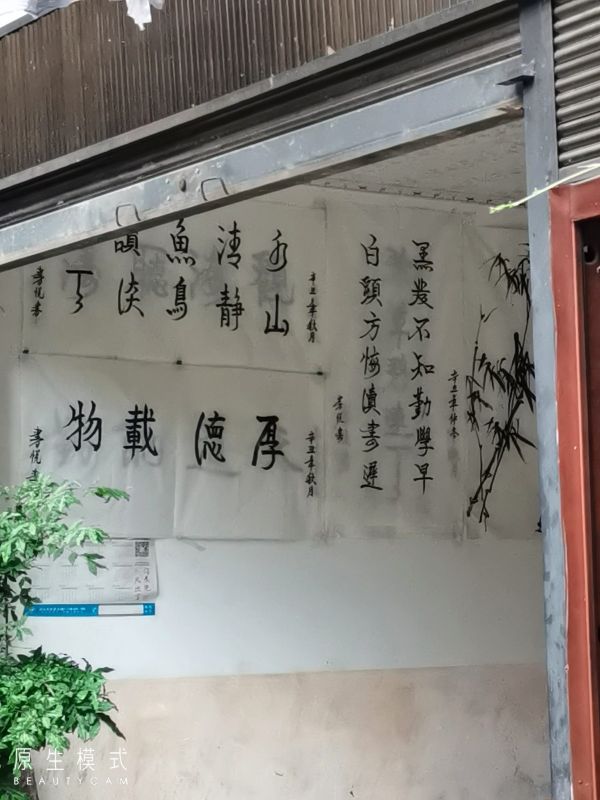 辛丑年仲冬
黑發不知勤學早
白頭方悔讀書遲
書悦書
辛丑年秋月
水山
清静
魚鳥
淡
書悦書
辛丑年秋月
厚德載物
書悦書
原生模式
BEAUTYCAM